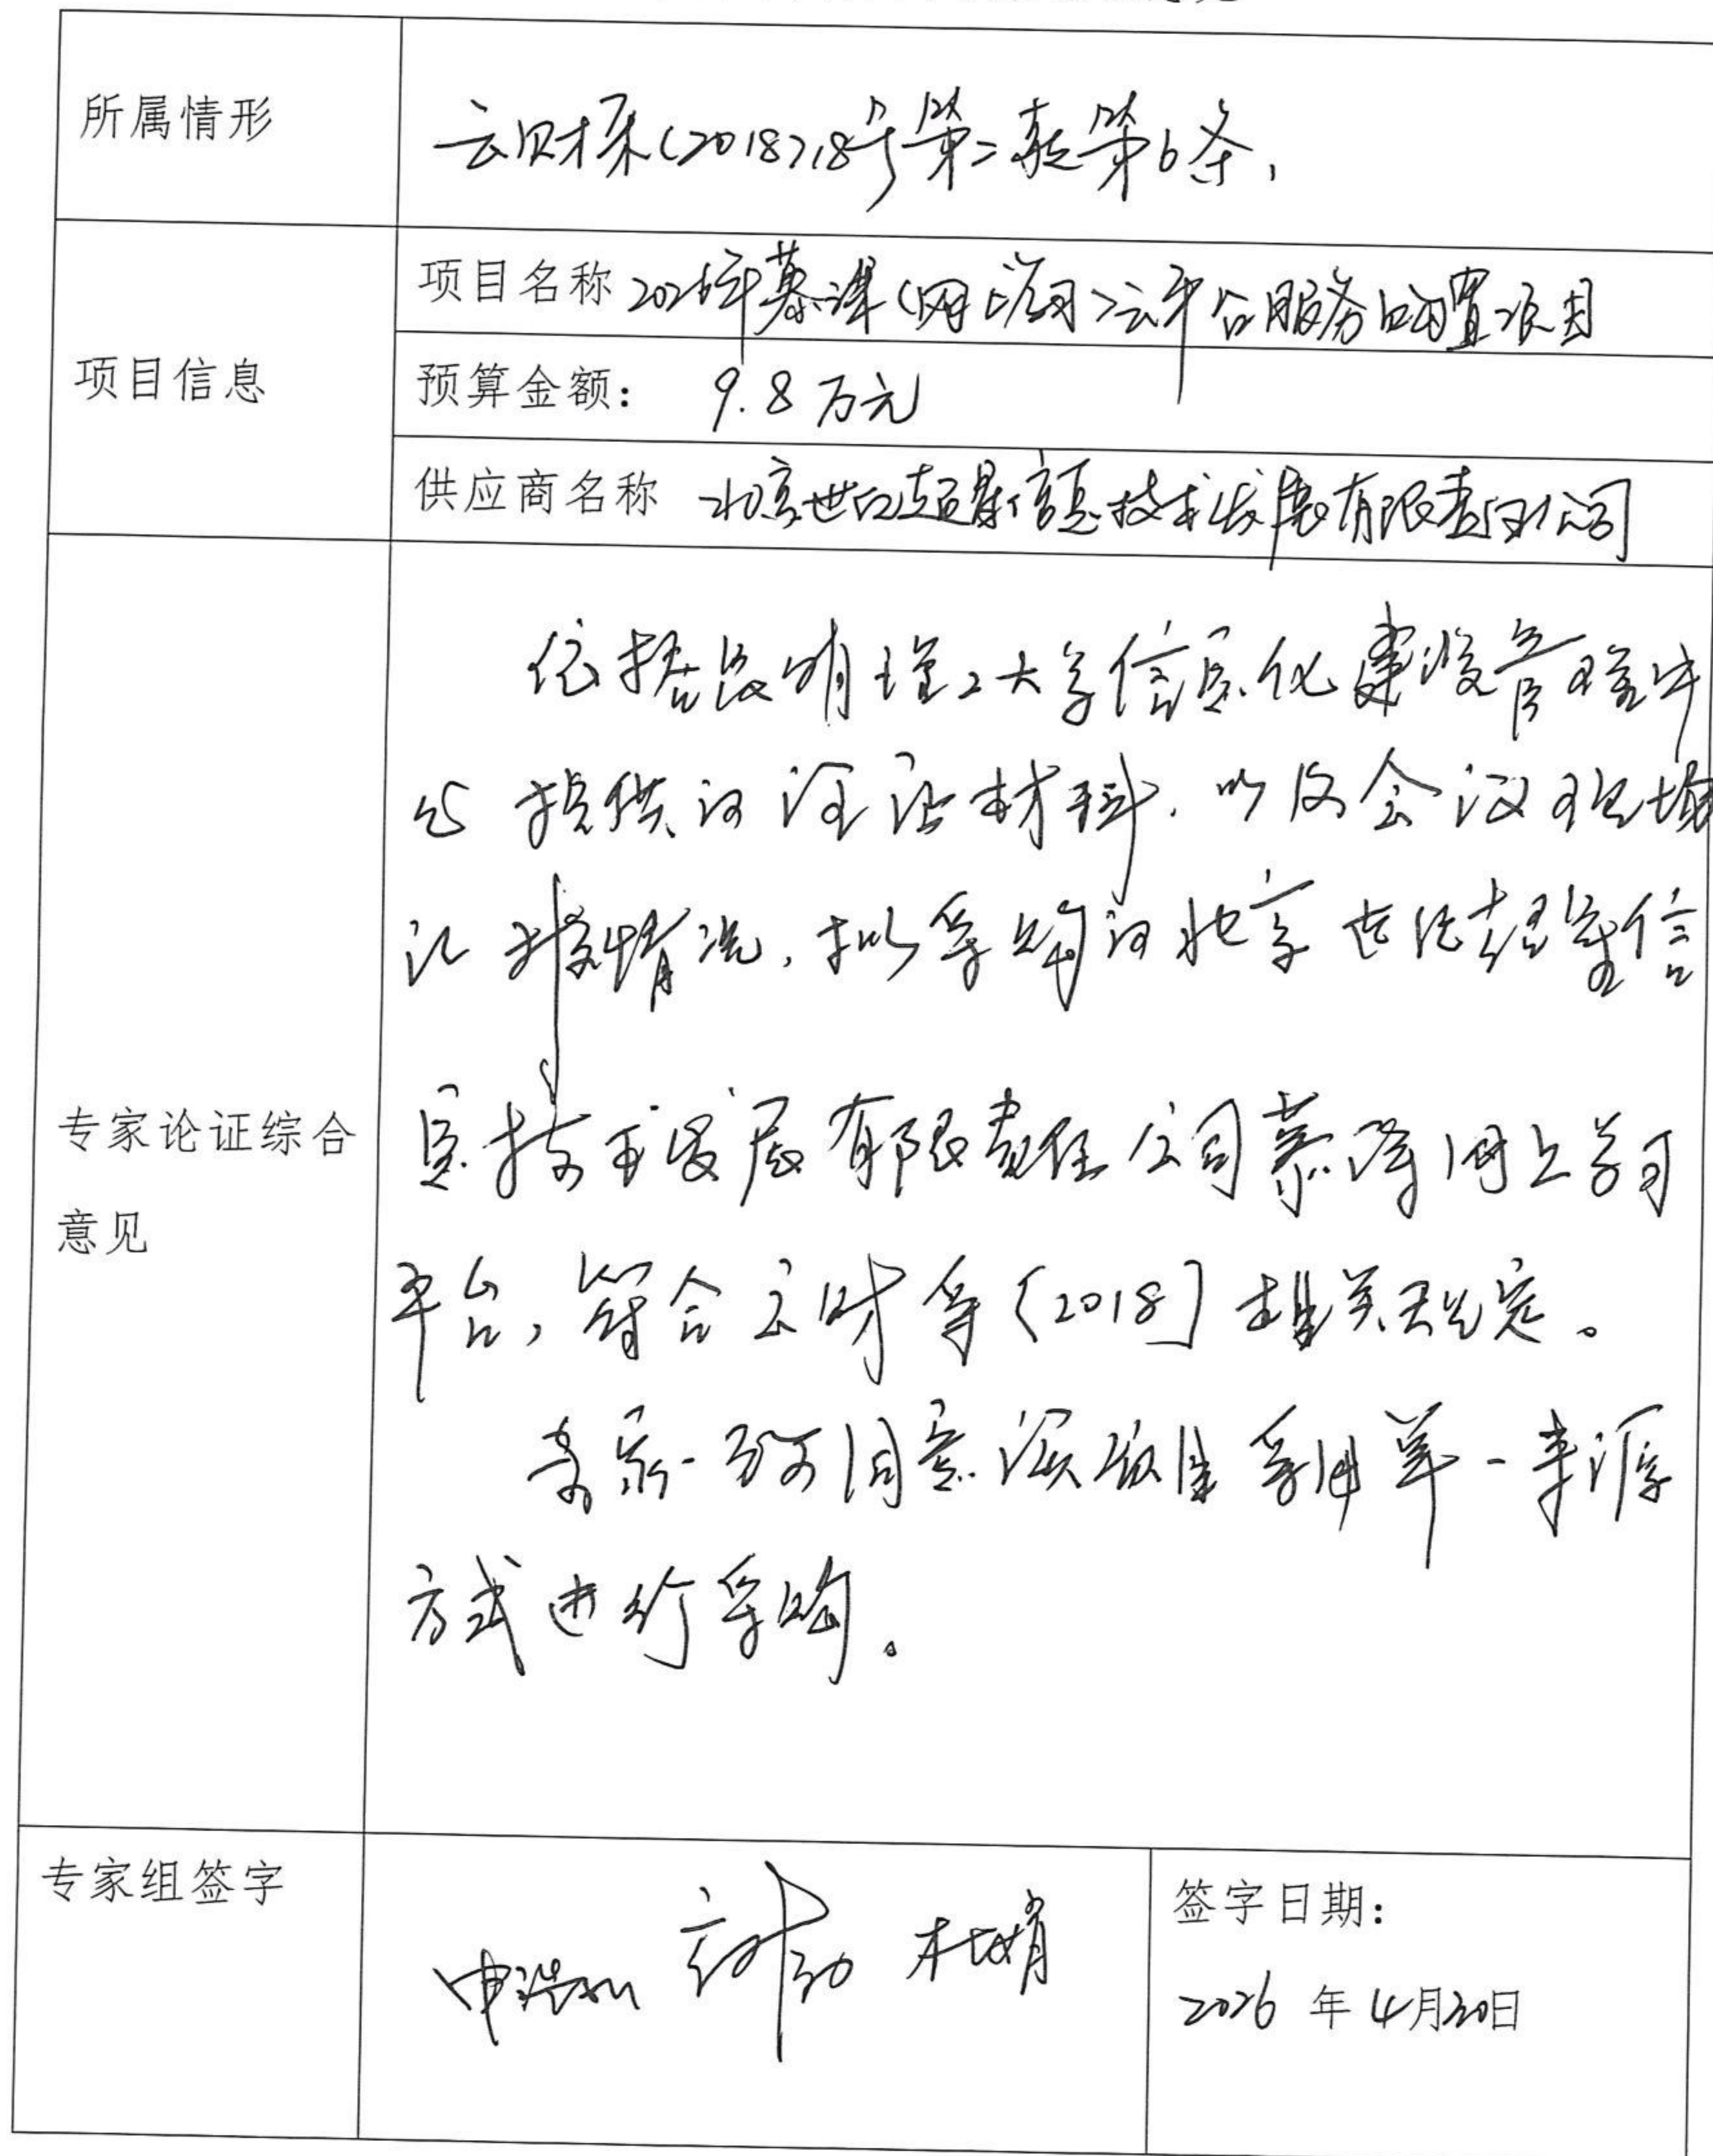 所属情形
云财采(2018)18号第二款第6条,
项目信息
项目名称 2026年慕课(网上学习)云平台服务购置项目
预算金额: 9.8万元
供应商名称 北京世纪超星信息技术发展有限责任公司
专家论证综合
意见
依据昆明理工大学信息化建设管理中
心提供的论证材料,以及会议现场
汇报情况,拟采购的北京世纪超星信
息技术发展有限责任公司慕课网上学习
平台,符合云财采[2018]相关规定。
专家一致同意该项目采用单一来源
方式进行采购。
专家组签字
杜娟
签字日期:
2026年4月20日